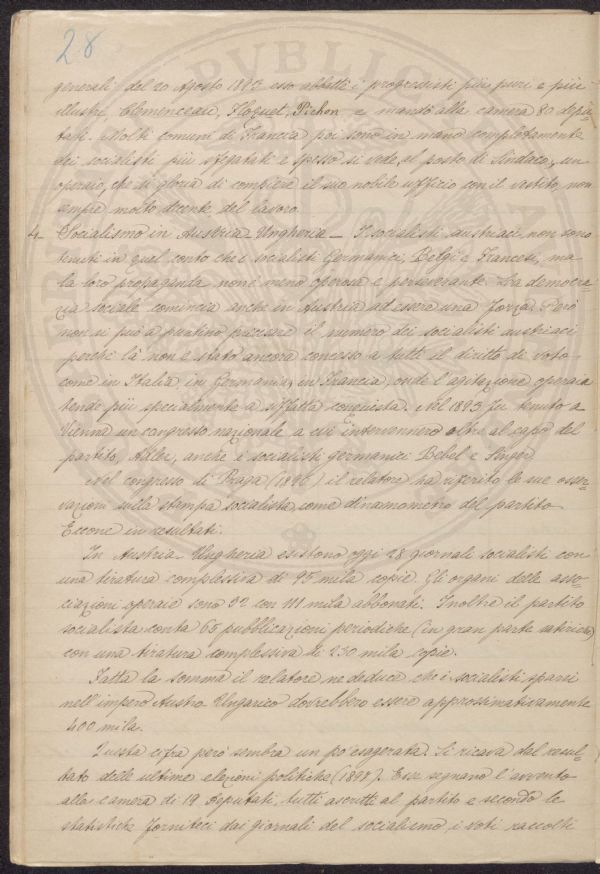 28
generali del 20 Agosto 1893 esso abbatté i progressisti più puri e più
illustri, Clemenceau, Floquet, Pichon e mandò alla camera 80 depu-
tati. Molti comuni di Francia poi sono in mano completamente
dei socialisti più sfegatati e spesso si vede, al posto di Sindaco, un
operaio, che si gloria di compiere il suo nobile ufficio con il vestito, non
sempre molto decente, del lavoro.
4_ Socialismo in Austria-Ungheria_ I socialisti austriaci non sono
tenuti in quel conto che i socialisti Germanici, Belgi e Francesi, ma
la loro propaganda non è meno operosa e perseverante. La democra-
zia sociale comincia anche in Austria ad essere una forza. Però
non si può a puntino precisare il numero dei socialisti austriaci
perchè là non è stato ancora concesso a tutti il diritto di voto
come in Italia, in Germania, in Francia, onde l'agitazione operaia
tende più specialmente a siffatta conquista. Nel 1893 fu tenuto a
Vienna un congresso nazionale a cui intervennero oltre al capo del
partito, Adler, anche i socialisti germanici Bebel e Singer
Nel congresso di Praga (1896) il relatore ha riferito le sue osser-
vazioni sulla stampa socialista, come dinamometro del partito
Eccone in resultati.
In Austria-Ungheria esistono oggi 28 giornali socialisti con
una tiratura complessiva di 95 mila copie. Gli organi delle asso-
ciazioni operaie sono 32 con 111 mila abbonati. Inoltre il partito
socialista conta 65 pubblicazioni periodiche (in gran parte satiriche)
con una tiratura complessiva di 230 mila copie.
Fatta la somma il relatore ne deduce che i socialisti sparsi
nell'impero Austro-Ungarico dovrebbero essere approssimativamente
400 mila.
Questa cifra però sembra un po' esagerata. Si ricava dal resul-
tato delle ultime elezioni politiche (1897). Esse segnano l'avvento
alla camera di 19 deputati, tutti ascritti al partito e secondo le
statistiche forniteci dai giornali del socialismo, i voti raccolti